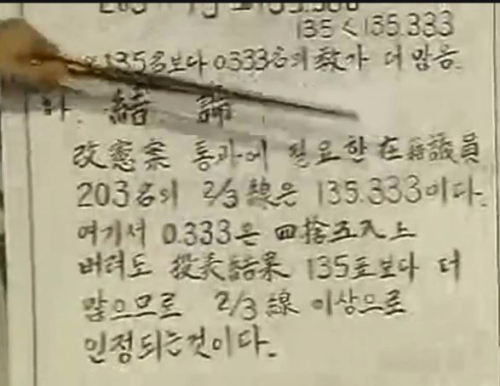 135<135.333
135名보다 0.333名의 数가 더 많음.
結論
改憲案 통과에 필요한 在籍議員
203名의 2/3線은 135.333이다.
여기서 0.333은 四捨五入上
버려도 投表結果 135표보다 더
많으므로 2/3線 이상으로
인정되는것이다.